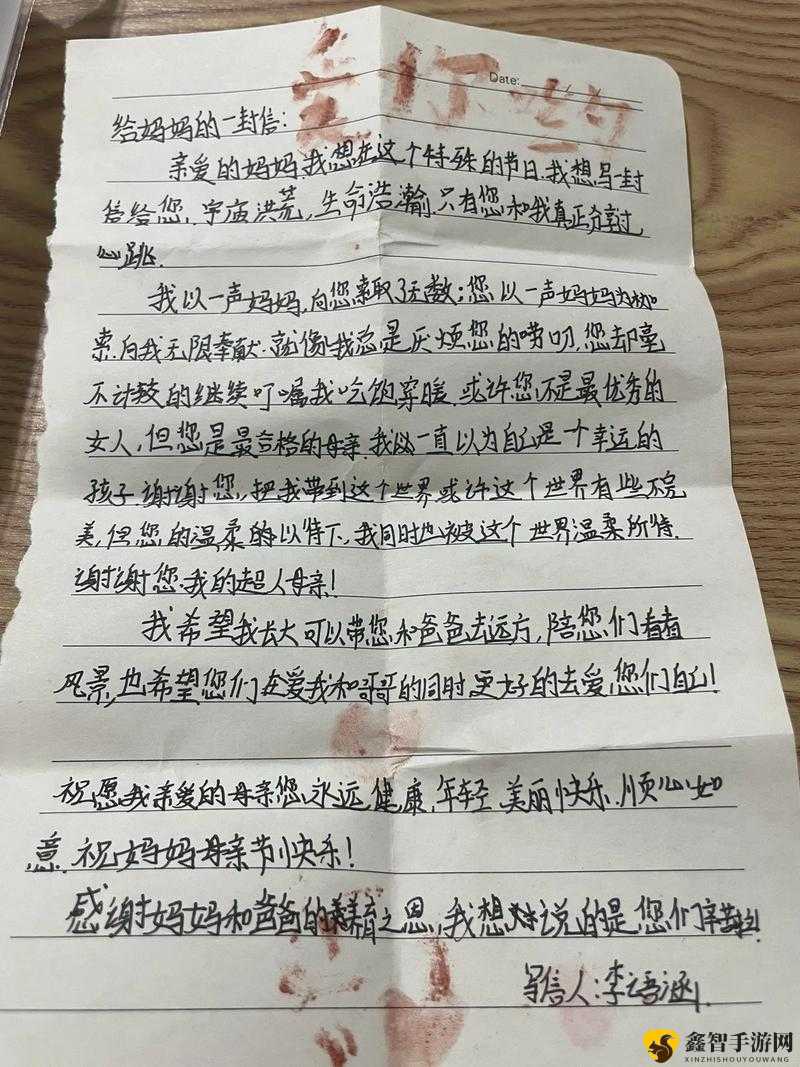 Date:
爱你哟
给妈妈的一封信:
亲爱的妈妈,我想在这个特殊的节日.我想写一封
信给您.宇宙洪荒,生命浩瀚.只有您和我真正分享过
心跳.
我以一声妈妈,向您索取了无数;您以一声妈妈为
索.向我无限奉献.就像我总是厌烦您的唠叨,您却毫
不计较的继续叮嘱我吃饱穿暖.或许您不是最优秀的
女人,但您是最合格的母亲.我一直以为自己是一个幸运的
孩子.谢谢您,把我带到这个世界或许这个世界有些不完
美,但您的温柔的以待下,我同时也被这个世界温柔所待.
谢谢您.我的超人母亲!
我希望我长大可以带您和爸爸去远方,陪您们看看
风景,也希望您们在爱我和哥哥的同时.更好的去爱.您们自己!
祝愿我亲爱的母亲您.永远.健康.年轻.美丽快乐.顺心如
意.祝妈妈母亲节快乐!
感谢妈妈和爸爸的养育之恩,我想说的是.您们辛苦了!
写信人:李语涵.
鑫智手游网
XINZHISHOUYOUWANG